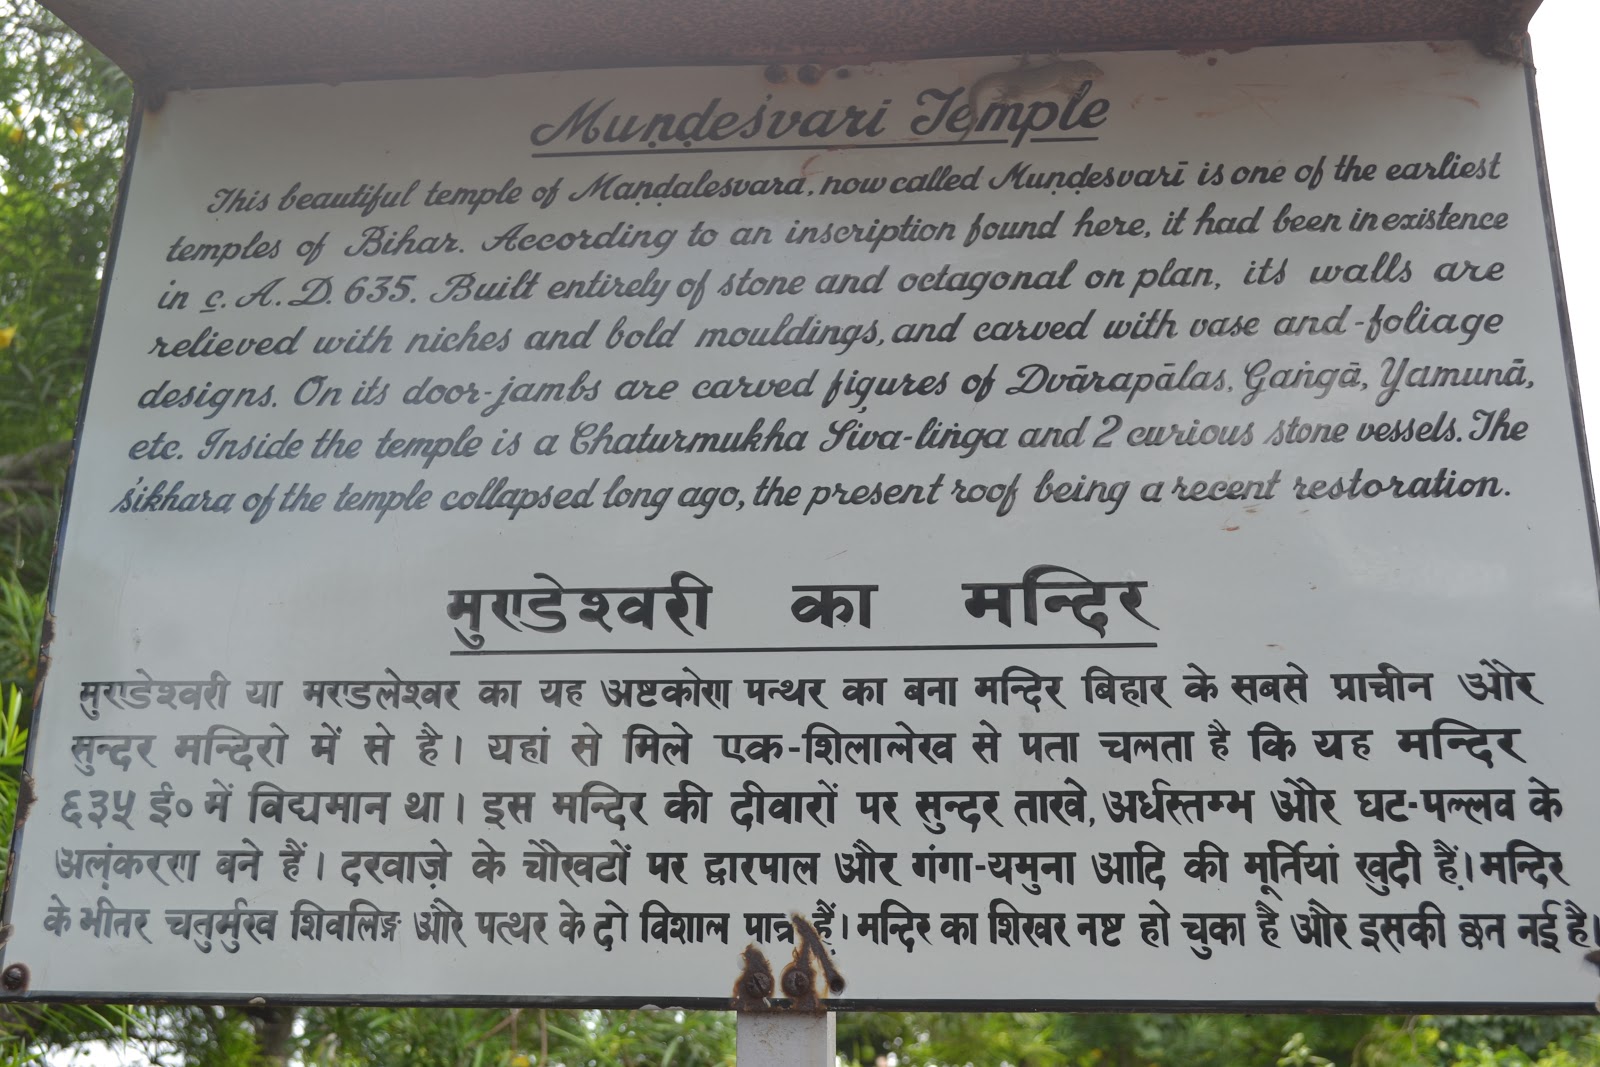 Muṇḍeśvari Temple
This beautiful temple of Maṇḍalesvara, now called Muṇḍesvarī is one of the earliest
temples of Bihar. According to an inscription found here, it had been in existence
in c. A.D. 635. Built entirely of stone and octagonal on plan, its walls are
relieved with niches and bold mouldings, and carved with vase and-foliage
designs. On its door-jambs are carved figures of Dvārapālas, Gaṅgā, Yamunā,
etc. Inside the temple is a Chaturmukha Śiva-liṅga and 2 curious stone vessels. The
śikhara of the temple collapsed long ago, the present roof being a recent restoration.
मुण्डेश्वरी का मन्दिर
मुण्डेश्वरी या मण्डलेश्वर का यह अष्टकोण पत्थर का बना मन्दिर बिहार के सबसे प्राचीन और
सुन्दर मन्दिरो में से है। यहां से मिले एक-शिलालेख से पता चलता है कि यह मन्दिर
६३५ ई० में विद्यमान था। इस मन्दिर की दीवारों पर सुन्दर ताखे, अर्धस्तम्भ और घट-पल्लव के
अलंकरण बने हैं। दरवाज़े के चौखटों पर द्वारपाल और गंगा-यमुना आदि की मूर्तियां खुदी हैं। मन्दिर
के भीतर चतुर्मुख शिवलिङ्ग और पत्थर के दो विशाल पात्र हैं। मन्दिर का शिखर नष्ट हो चुका है और इसकी छत नई है।